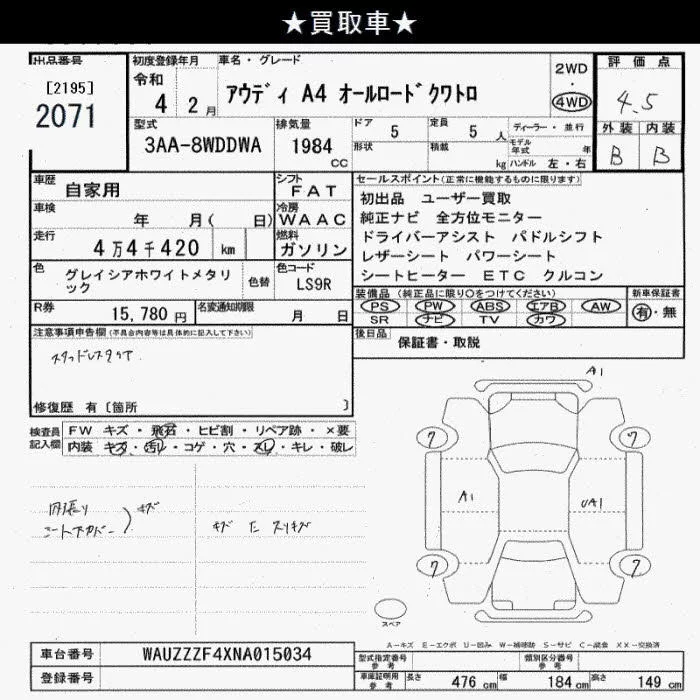 ★買取車★
出品番号
[2195]
2071
初度登録年月
令和
4 2月
車名・グレード
アウディ A4 オールロードクワトロ
2WD
・
4WD
評価点
4.5
外装 内装
B B
型式
3AA-8WDDWA
排気量
1984
CC
ドア 5
定員 5 人
形状
積載 kg
ディーラー・並行
モデル年式 年
ハンドル 左・右
車歴 自家用
シフト FAT
車検 年 月( 日)
冷房 WAAC
走行 4万4千420 km
燃料 ガソリン
色 グレイシアホワイトメタリック
色替
色コード LS9R
R券 15,780円
名変通知期限 月 日
セールスポイント(正常に機能するものに限ります)
初出品 ユーザー買取
純正ナビ 全方位モニター
ドライバーアシスト パドルシフト
レザーシート パワーシート
シートヒーター ETC クルコン
装備品 (純正品に限り○をつけてください)
PS PW ABS エアB AW
SR ナビ TV カワ
新車保証書
有・無
後日品 保証書・取説
注意事項申告欄(不具合内容等は具体的に記入して下さい)
スタッドレスタイヤ
修復歴 有〔箇所 〕
検査員記入欄
FW キズ・飛石・ヒビ割・リペア跡・×要
内装 キズ・汚レ・コゲ・穴・スレ・キレ・破レ
内張り
シートカバー
キズ
キズ スリキズ
A1
7 7
A1 UA1
7 7
スペア
A-キズ E-エクボ U-凹み W-補修跡 S-サビ C-腐食 XX-交換済
車台番号 WAUZZZF4XNA015034
登録番号
型式指定番号 参考
類別区分番号 参考
車庫証明用 参考
長さ 476 cm 幅 184 cm 高さ 149 cm